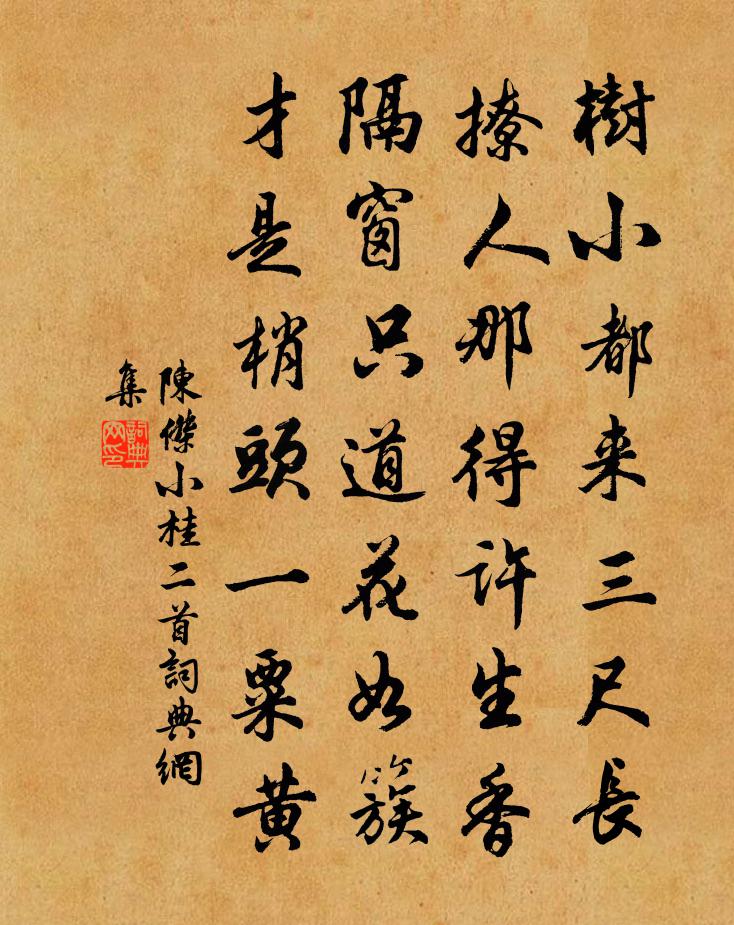 樹小都来三尺長
撩人那得許生香
隔窗只道花如簇
才是梢頭一粟黄
陳傑小桂二首詞典網
集
詞典
网印